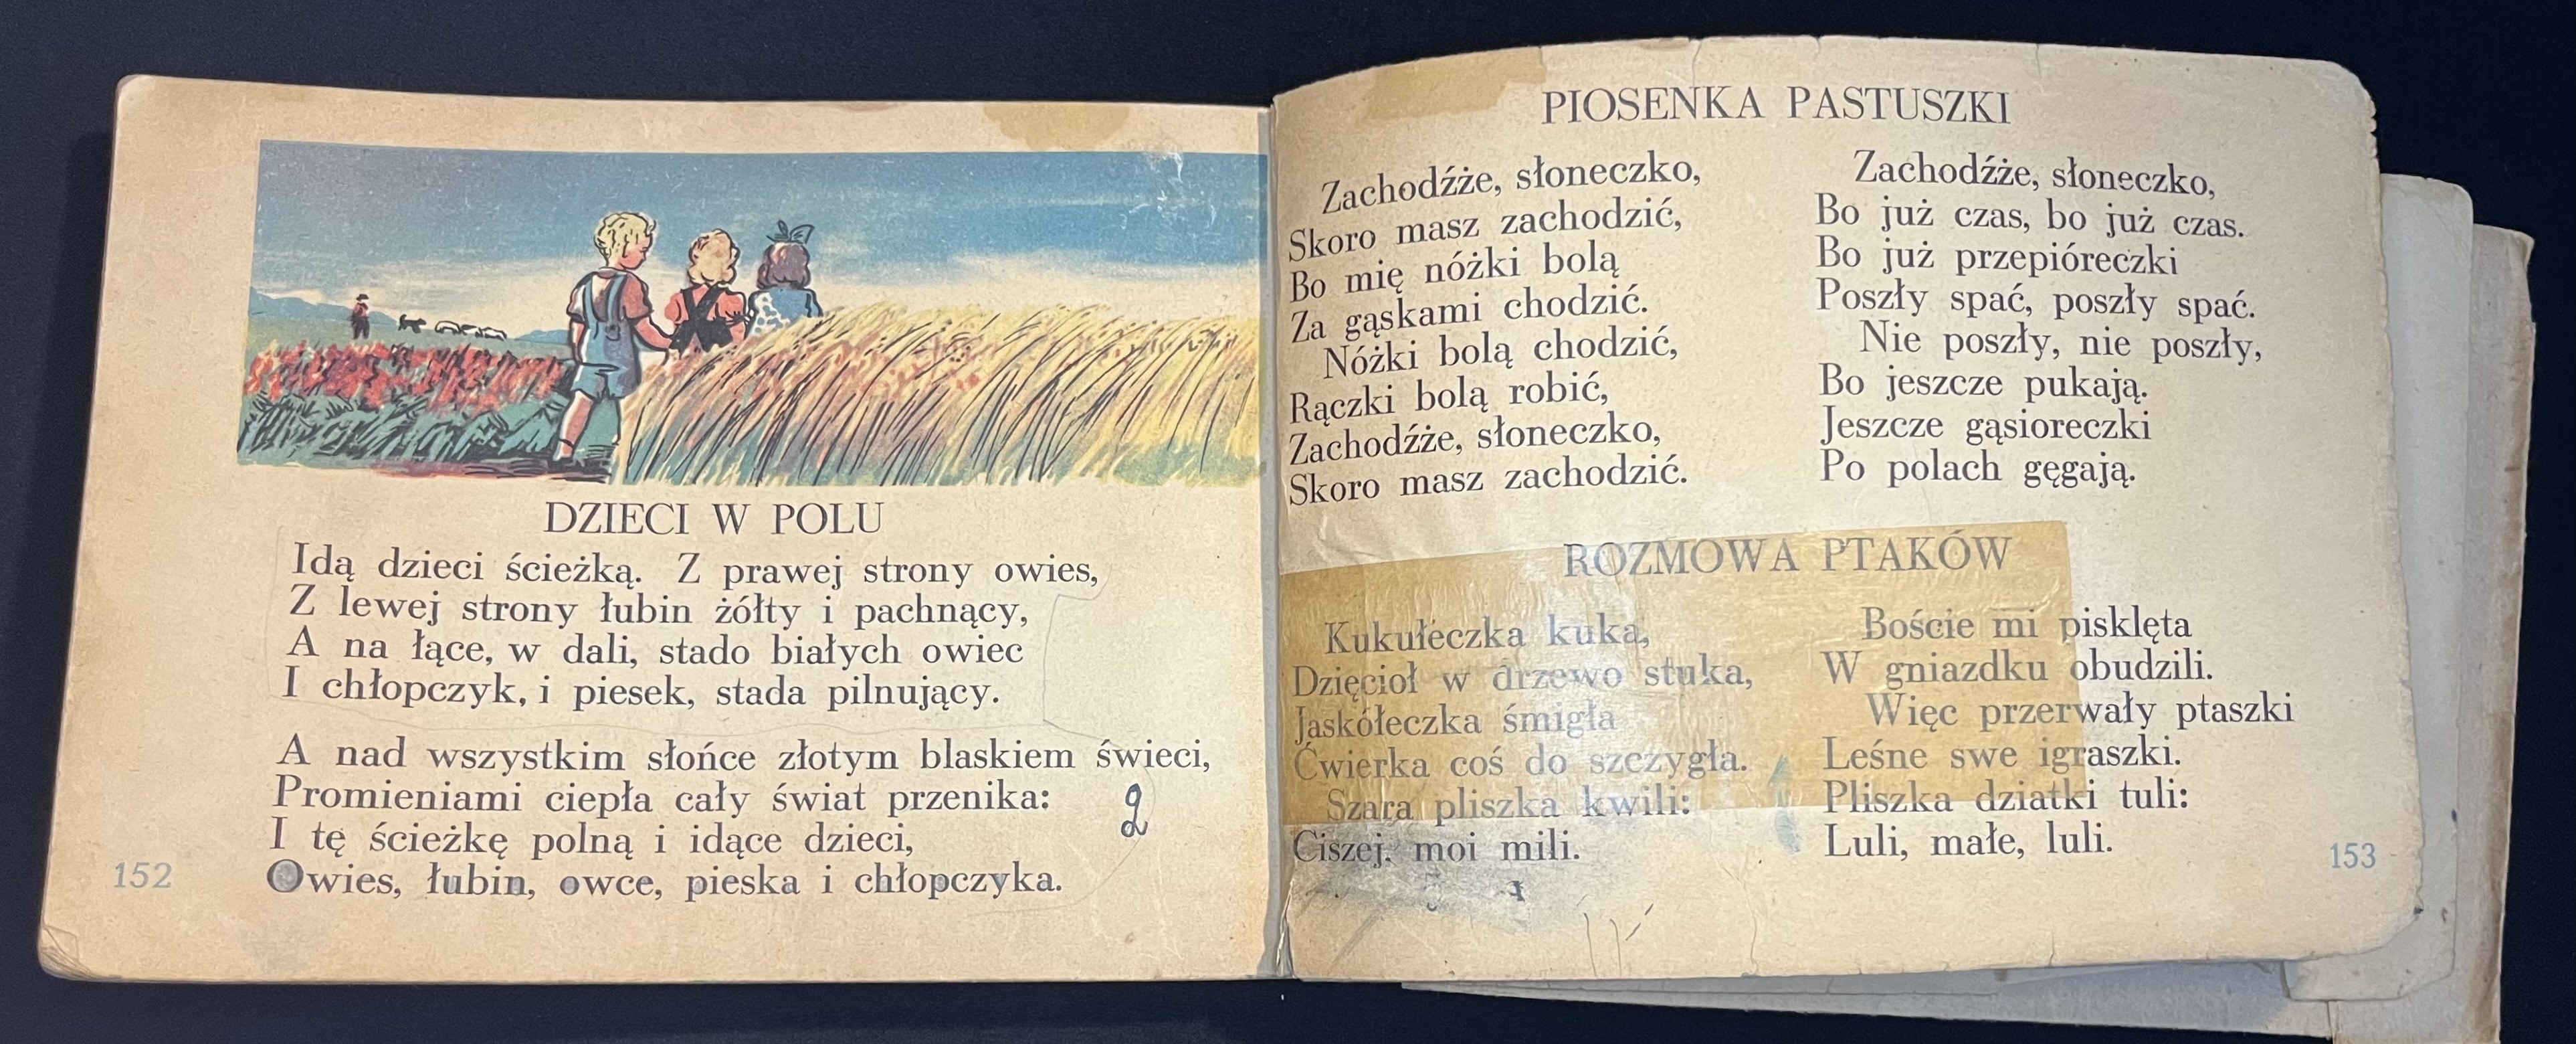 DZIECI W POLU
Idą dzieci ścieżką. Z prawej strony owies,
Z lewej strony łubin żółty i pachnący,
A na łące, w dali, stado białych owiec
I chłopczyk, i piesek, stada pilnujący.
A nad wszystkim słońce złotym blaskiem świeci,
Promieniami ciepła cały świat przenika:
I tę ścieżkę polną i idące dzieci,
Owies, łubin, owce, pieska i chłopczyka.
2
152
PIOSENKA PASTUSZKI
Zachodźże, słoneczko,
Skoro masz zachodzić,
Bo mię nóżki bolą
Za gąskami chodzić.
Nóżki bolą chodzić,
Rączki bolą robić,
Zachodźże, słoneczko,
Skoro masz zachodzić.
Zachodźże, słoneczko,
Bo już czas, bo już czas.
Bo już przepióreczki
Poszły spać, poszły spać.
Nie poszły, nie poszły,
Bo jeszcze pukają.
Jeszcze gąsioreczki
Po polach gęgają.
ROZMOWA PTAKÓW
Kukułeczka kuka,
Dzięcioł w drzewo stuka,
Jaskółeczka śmigła
Ćwierka coś do szczygła.
Szara pliszka kwili:
Ciszej, moi mili.
Boście mi pisklęta
W gniazdku obudzili.
Więc przerwały ptaszki
Leśne swe igraszki.
Pliszka dziatki tuli:
Luli, małe, luli.
153